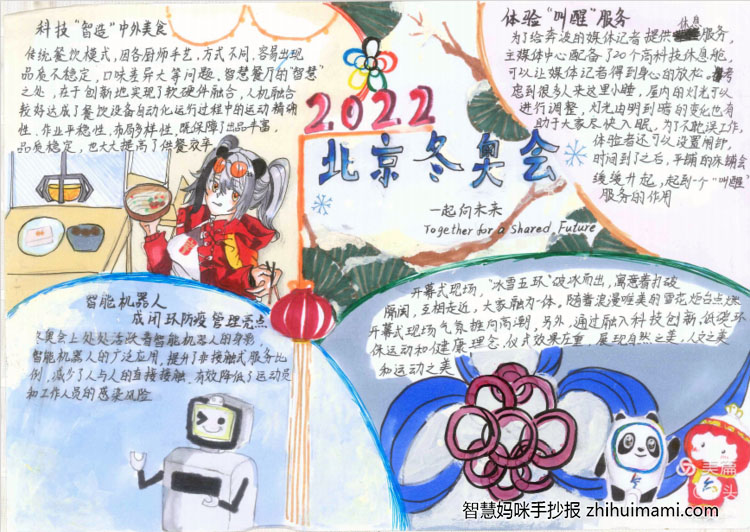 科技"智造"中外美食
传统餐饮模式,因各厨师手艺、方式不同,容易出现
品质不稳定,口味差异大等问题。智慧餐厅的"智慧"
之处,在于创新地实现了软硬件融合,人机融合
较好达成了餐饮设备自动化运行过程中的运动精确
性、作业平稳性、布局多样性,既保障了出品丰富,
品质稳定,也大大提高了供餐效率
2022
北京冬奥会
一起向未来
Together for a Shared Future
体验"叫醒"服务
为了给奔波的媒体记者提供休息服务,
主媒体中心配备了20个高科技休息舱,
可以让媒体记者得到身心的放松,考
虑到很多人来这里小睡,屋内的灯光可以
进行调整,灯光由明到暗的变化也有
助于大家尽快入眠,为了不耽误工作,
体验者还可以设置闹钟,
时间到了之后,平铺的床铺会
缓缓升起,起到一个"叫醒"
服务的作用
智能机器人
成闭环防疫管理亮点
冬奥会上处处活跃着智能机器人的身影,
智能机器人的广泛应用,提升了非接触式服务比
例,减少了人与人的直接接触,有效降低了运动员
和工作人员的感染风险
开幕式现场,"冰雪五环"破冰而出,寓意着打破
隔阂,互相走近,大家融为一体,随着浪漫唯美的雪花炬台点燃
开幕式现场气氛推向高潮,另外,通过融入科技创新,低碳环
保运动和健康理念,仪式效果庄重,展现自然之美,人文之美
和运动之美
美篇
智慧妈咪手抄报 zhihuimami.com